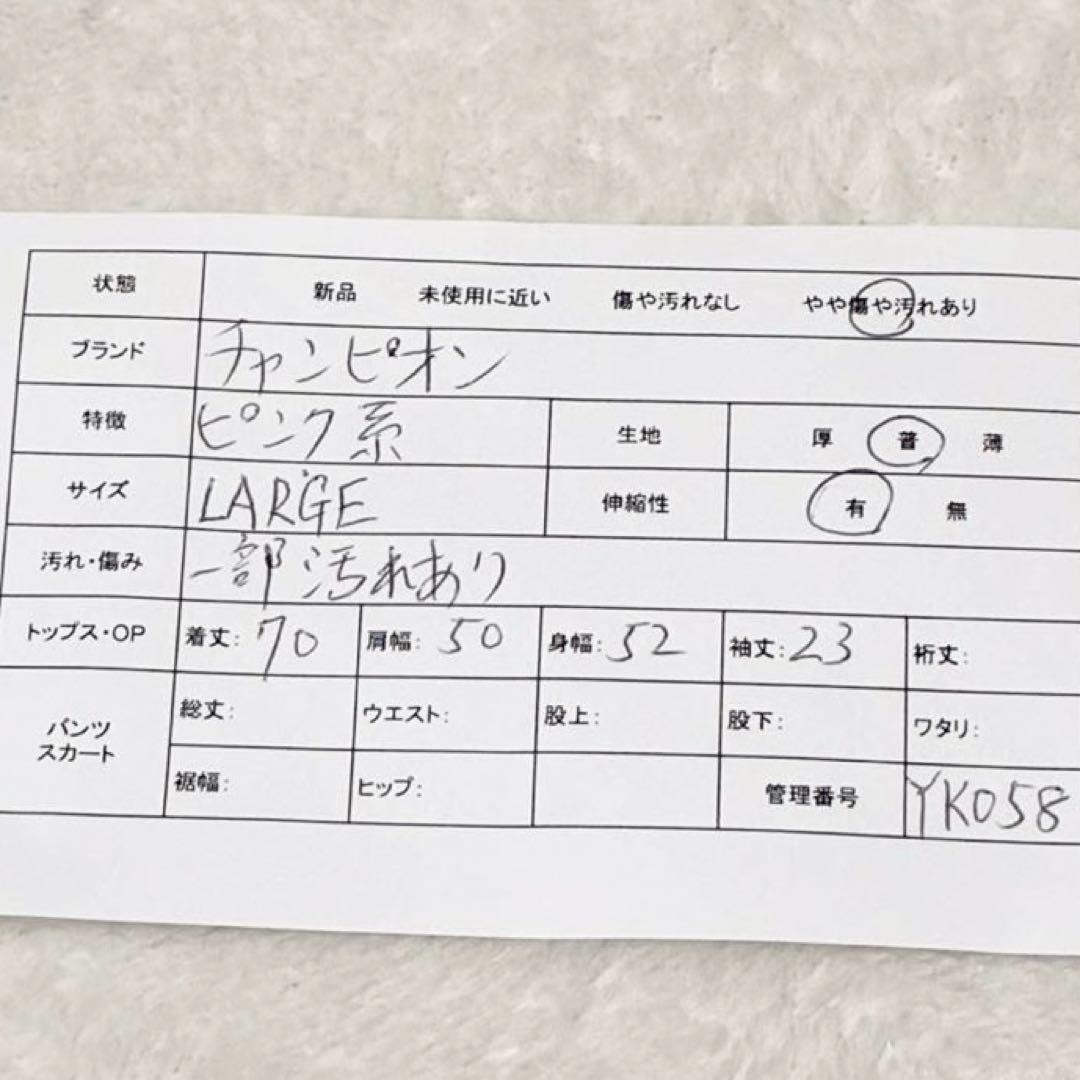 状態 新品 未使用に近い 傷や汚れなし やや傷や汚れあり
ブランド チャンピオン
特徴 ピンク系 生地 厚 普 薄
サイズ LARGE 伸縮性 有 無
汚れ・傷み 一部汚れあり
トップス・OP 着丈: 70 肩幅: 50 身幅: 52 袖丈: 23 裄丈:
パンツ
スカート
総丈: ウエスト: 股上: 股下: ワタリ:
裾幅: ヒップ: 管理番号 YK058